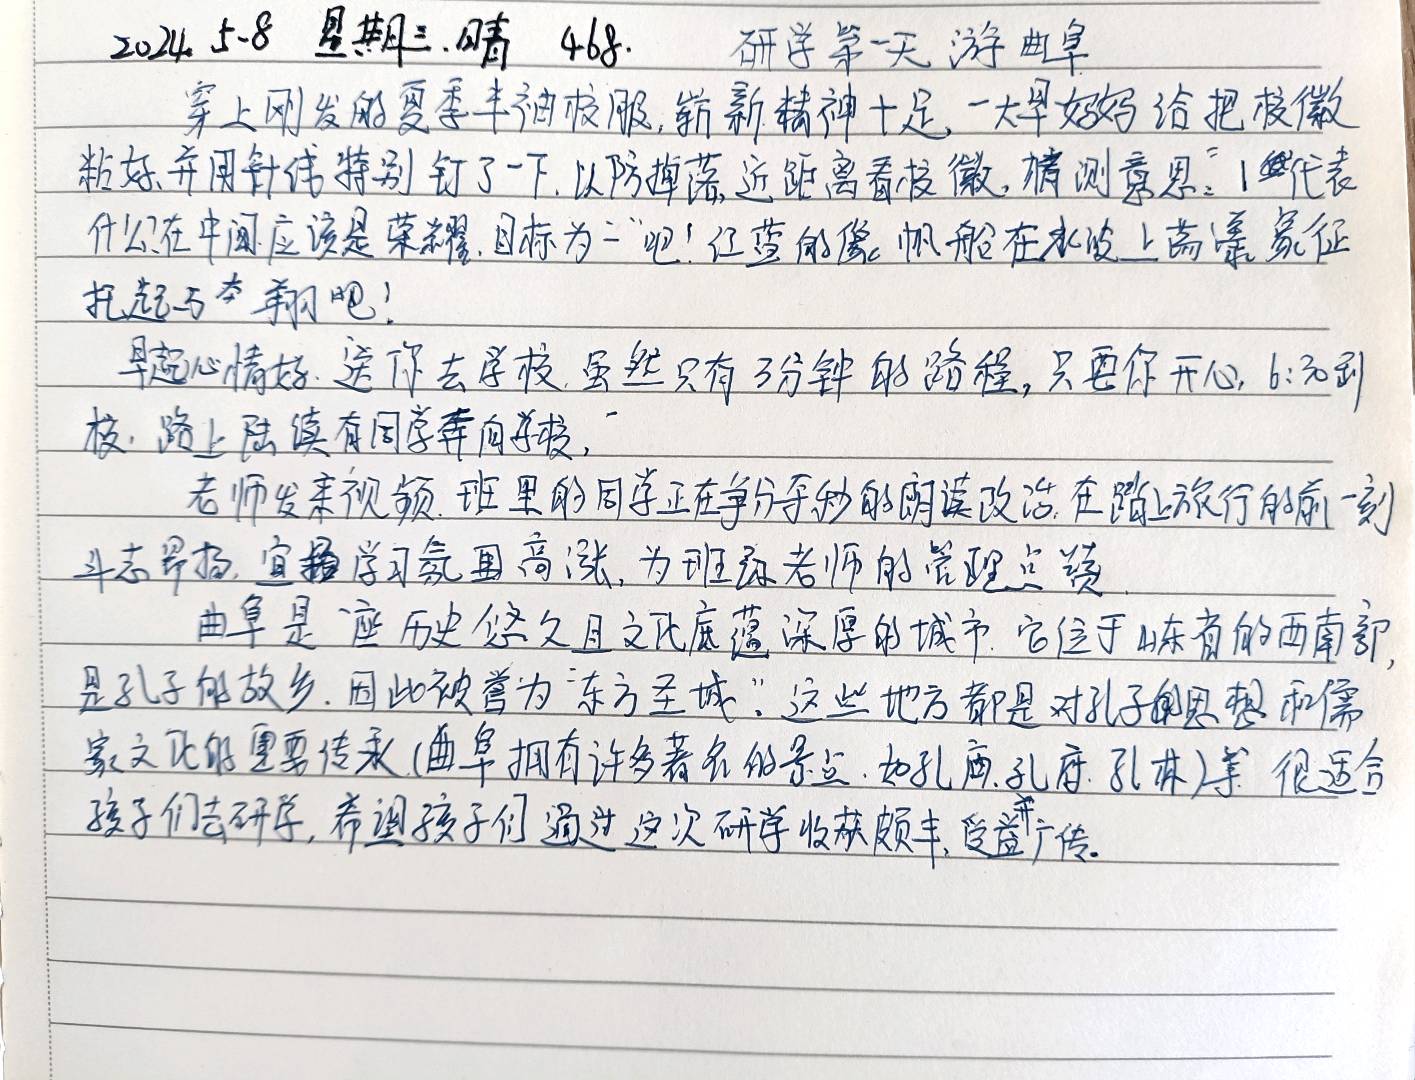 2024. 5-8 星期三.晴 468. 研学第一天 游曲阜
穿上刚发的夏季半袖校服,崭新精神十足,一大早妈妈给把校徽
粘好,并用针线特别钉了一下,以防掉落,近距离看校徽,猜测意思:"1"代表
什么?在中间应该是荣耀.目标为"一"吧!红蓝的像帆船在水波上荡漾,象征
托起与奔翔吧!
早起心情好.送你去学校,虽然只有3分钟的路程,只要你开心,6:20到
校.路上陆续有同学奔向学校,
老师发来视频.班里的同学正在争分夺秒的朗读政治,在踏上旅行的前一刻
斗志昂扬. 学习氛围高涨,为班级老师的管理点赞
曲阜是一座历史悠久且文化底蕴深厚的城市.它位于山东省的西南部,
是孔子的故乡.因此被誉为"东方圣城".这些地方都是对孔子思想和儒
家文化的重要传承(曲阜拥有许多著名的景点.如孔庙.孔府.孔林)等 很适合
孩子们去研学,希望孩子们通过这次研学收获颇丰,受益并广传。